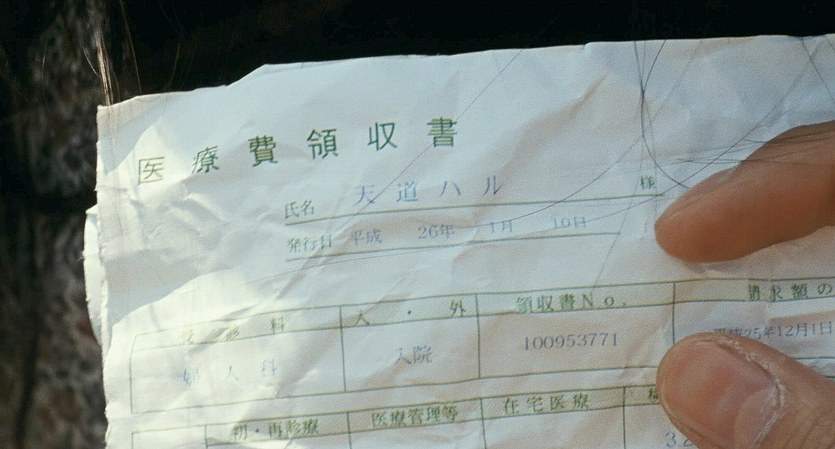 医療費領収書
氏名 天道ハル 様
発行日 平成 26年 1月 10日
入・外 領収書No. 請求額の
婦人科 入院 100953771 平成25年12月1日
初・再診療 医療管理等 在宅医療